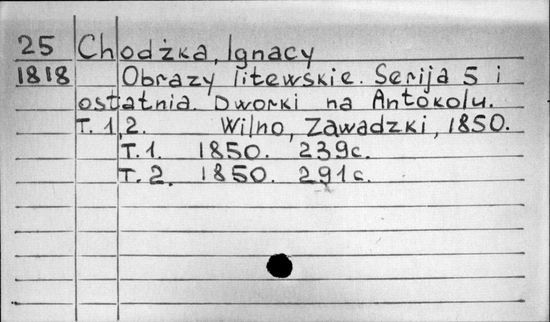 25 Chodźka, Ignacy
1818 Obrazy litewskie. Serija 5 i
ostatnia. Dworki na Antokolu.
T. 1, 2. Wilno, Zawadzki, 1850.
T. 1. 1850. 239c.
T. 2. 1850. 291c.